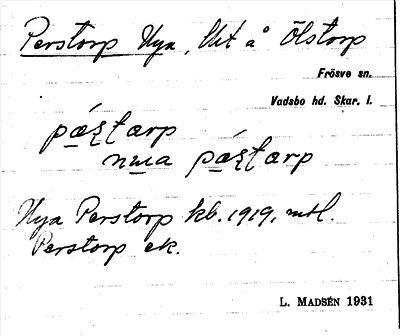 Perstorp Nya, Utt å Ölstorp
Frösve sn.
Vadsbo hd. Skar. l.
Nya Perstorp kb. 1919, mtl.
Perstorp ek.
L. MADSÉN 1931